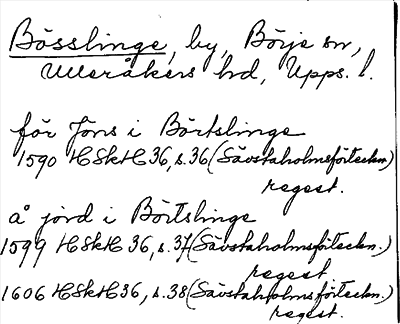 Bösslinge, by, Börje sn,
Ulleråkers hd, Upps. l.
för Jöns i Börtslinge
1590 HSkH 36, s. 36 (Sävstaholmsförteckn.)
regest.
å jörd i Börtslinge
1599 HSkH 36, s. 37 (Sävstaholmsförteckn.)
regest
1606 HSkH 36, s. 38 (Sävstaholmsförteckn.)
regest.